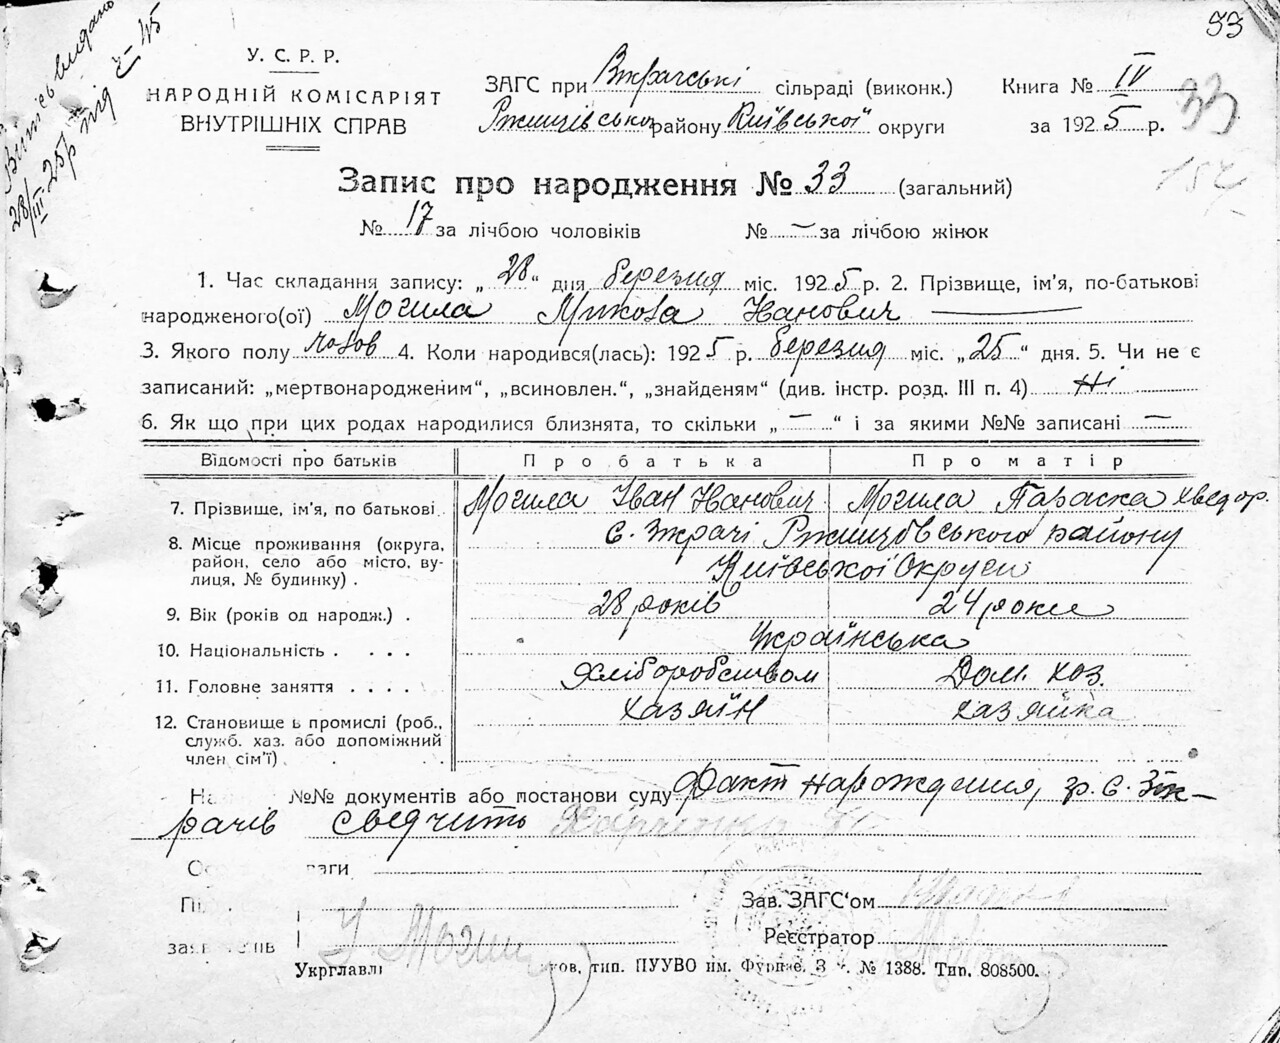 53
Витісь видано
28/III 25р. під Ч-45
У. С. Р. Р.
НАРОДНІЙ КОМІСАРІЯТ
ВНУТРІШНІХ СПРАВ
ЗАГС при Втрачські сільраді (виконк.)
Ржищівсько району Київської округи
Книга № IV
за 1925 р.
33
154
Запис про народження № 33 (загальний)
№ 17 за лічбою чоловіків № — за лічбою жінок
1. Час складання запису: „28“ дня березня міс. 1925 р. 2. Прізвище, ім'я, по-батькові
народженого(ої) Могила Микола Іванович
3. Якого полу чолов 4. Коли народився(лась): 1925 р. березня міс. „25“ дня. 5. Чи не є
записаний: „мертвонародженим“, „всиновлен.“, „знайденям“ (див. інстр. розд. III п. 4) Ні
6. Як що при цих родах народилися близнята, то скільки „—“ і за якими №№ записані —
Відомості про батьків Про батька Про матір
7. Прізвище, ім'я, по батькові Могила Іван Іванович Могила Параска Хведор.
8. Місце проживання (округа, район, село або місто, вулиця, № будинку) . с. Втрачі Ржищівського району
Київської Округи
9. Вік (років од народж.) . 28 років 24 роки
10. Національність . . . . Українська
11. Головне заняття . . . . Хліборобством Дом. хоз.
12. Становище в промислі (роб., служб. хаз. або допоміжний член сім'ї) хазяїн хазяйка
№№ документів або постанови суду Факт нарождения, гр. с. Вт-
рачів сведчить
Зав. ЗАГС'ом
Реєстратор
І. Могил
Укрглавлі ков. тип. ПУУВО им. Фрунзе. З № 1388. Тир. 808500.